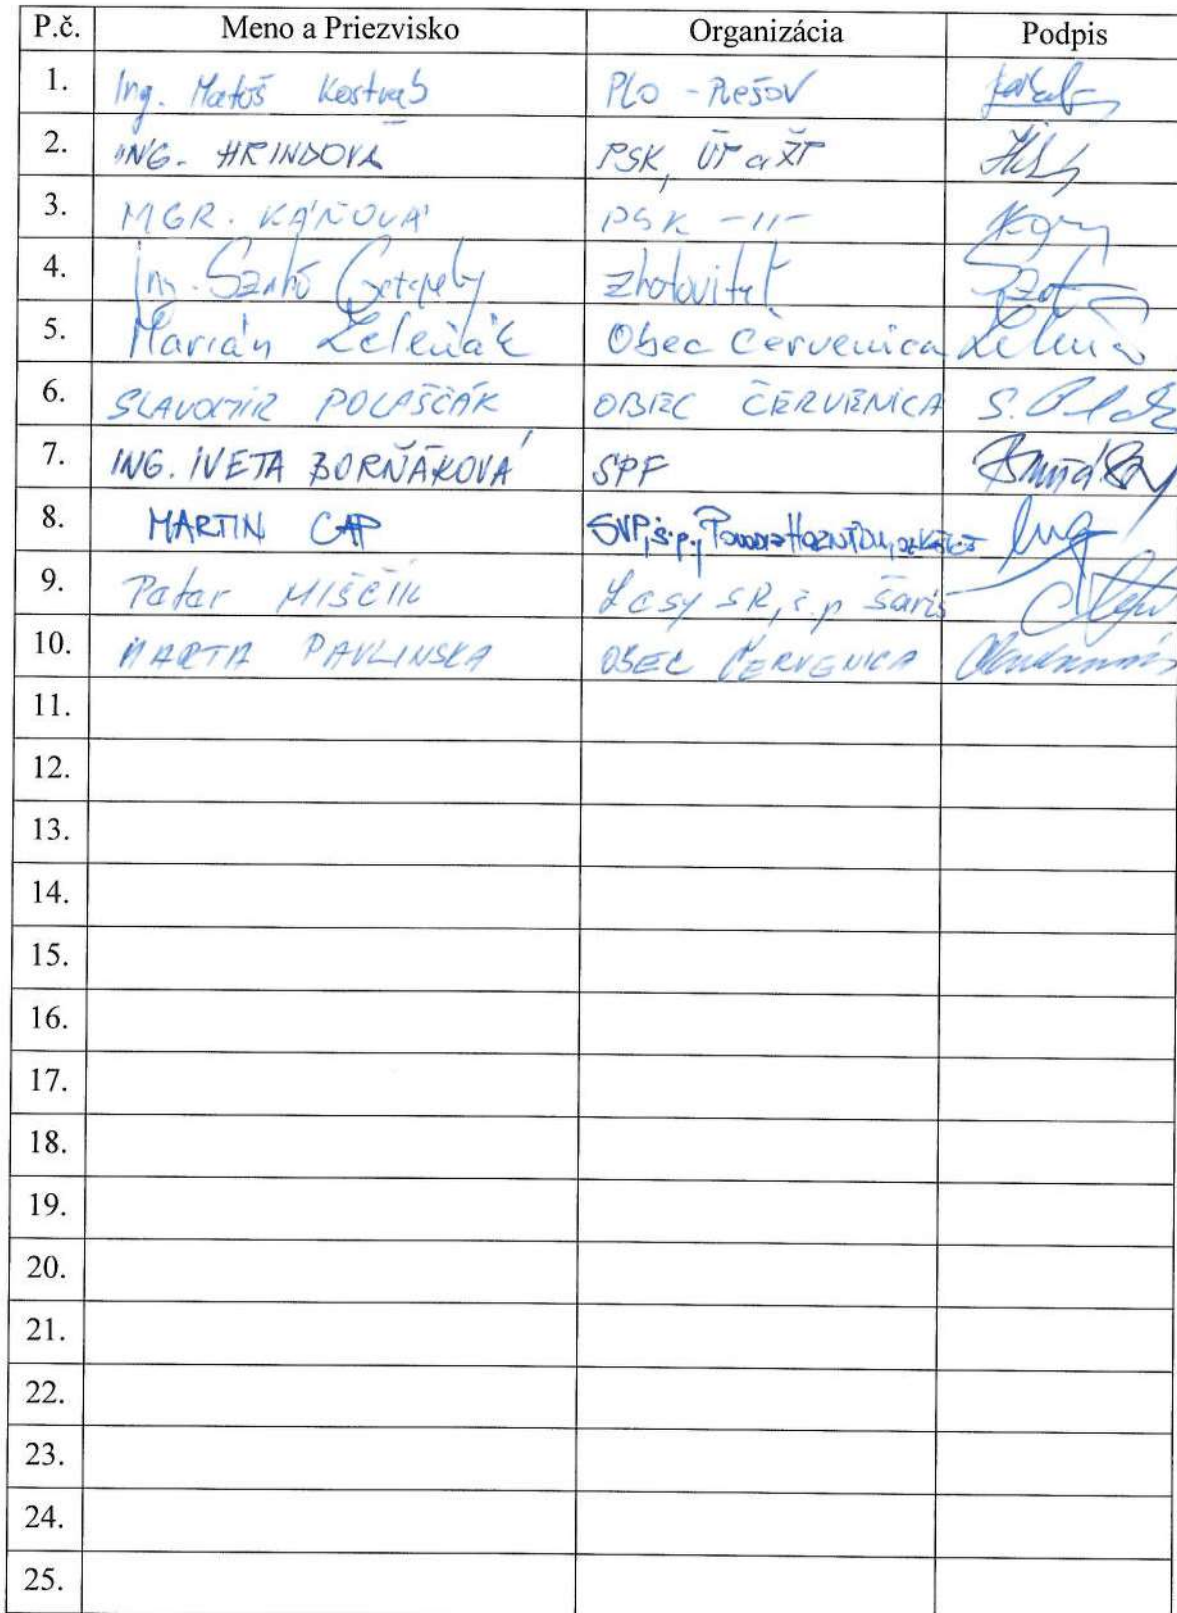 P.č. Meno a Priezvisko Organizácia Podpis
1. Ing. Matúš Kostrab PLO - Prešov
2. ING. HRINDOVÁ PSK, ÚP a ŽP
3. MGR. KÁŇOVÁ PSK -11-
4. Ing. Szabó Gergely zhotoviteľ
5. Marián Zeleňák Obec Červenica
6. SLAVOMÍR POLAŠČÁK OBEC ČERVENICA S.
7. ING. IVETA BORŇÁKOVÁ SPF
8. MARTIN CAP SVP, š.p.,
9. Peter MIŠČÍK Lesy SR, š.p Šariš
10. MARTA PAVLINSKA OBEC ČERVENICA
11.
12.
13.
14.
15.
16.
17.
18.
19.
20.
21.
22.
23.
24.
25.